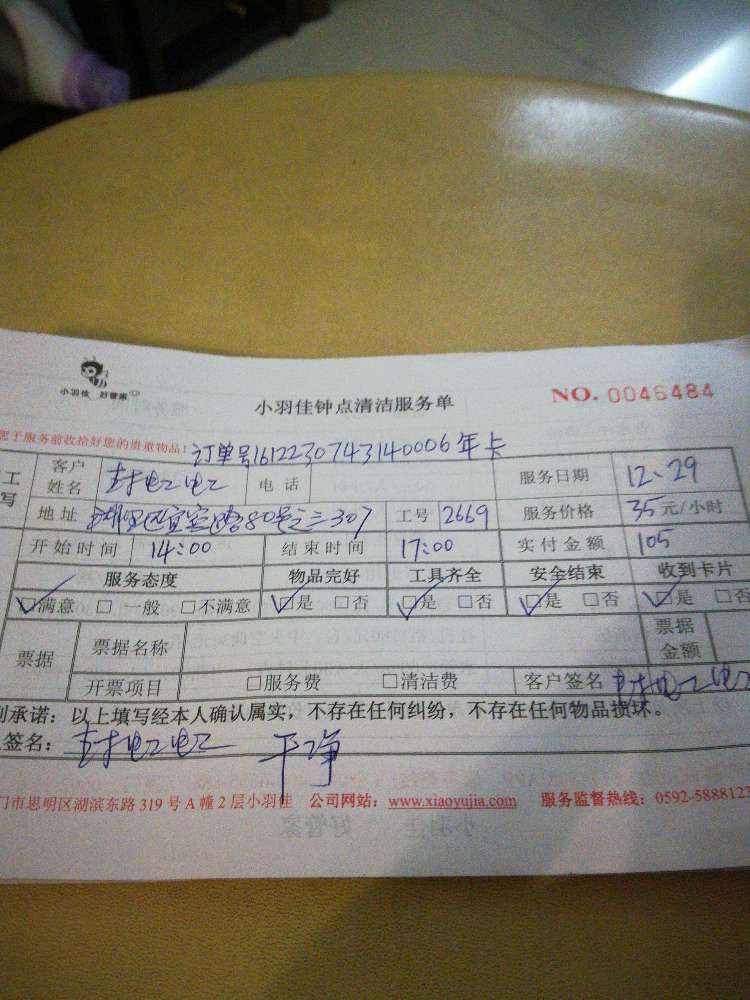 小羽佳 好管家
小羽佳钟点清洁服务单 NO. 0046484
于服务前收拾好您的贵重物品！ 订单号1612230743140006年卡
工 客户姓名 电话 服务日期 12、29
写 地址 80号之三307 工号 2669 服务价格 35元/小时
开始时间 14:00 结束时间 17:00 实付金额 105
服务态度 物品完好 工具齐全 安全结束 收到卡片
☑满意 □一般 □不满意 ☑是 □否 ☑是 □否 ☑是 □否 ☑是 □否
票据 票据名称 票据金额
开票项目 □服务费 □清洁费 客户签名
承诺：以上填写经本人确认属实，不存在任何纠纷，不存在任何物品损坏。
签名： 干净
门市思明区湖滨东路319号A幢2层小羽佳 公司网站：www.xiaoyujia.com 服务监督热线：0592-5888123